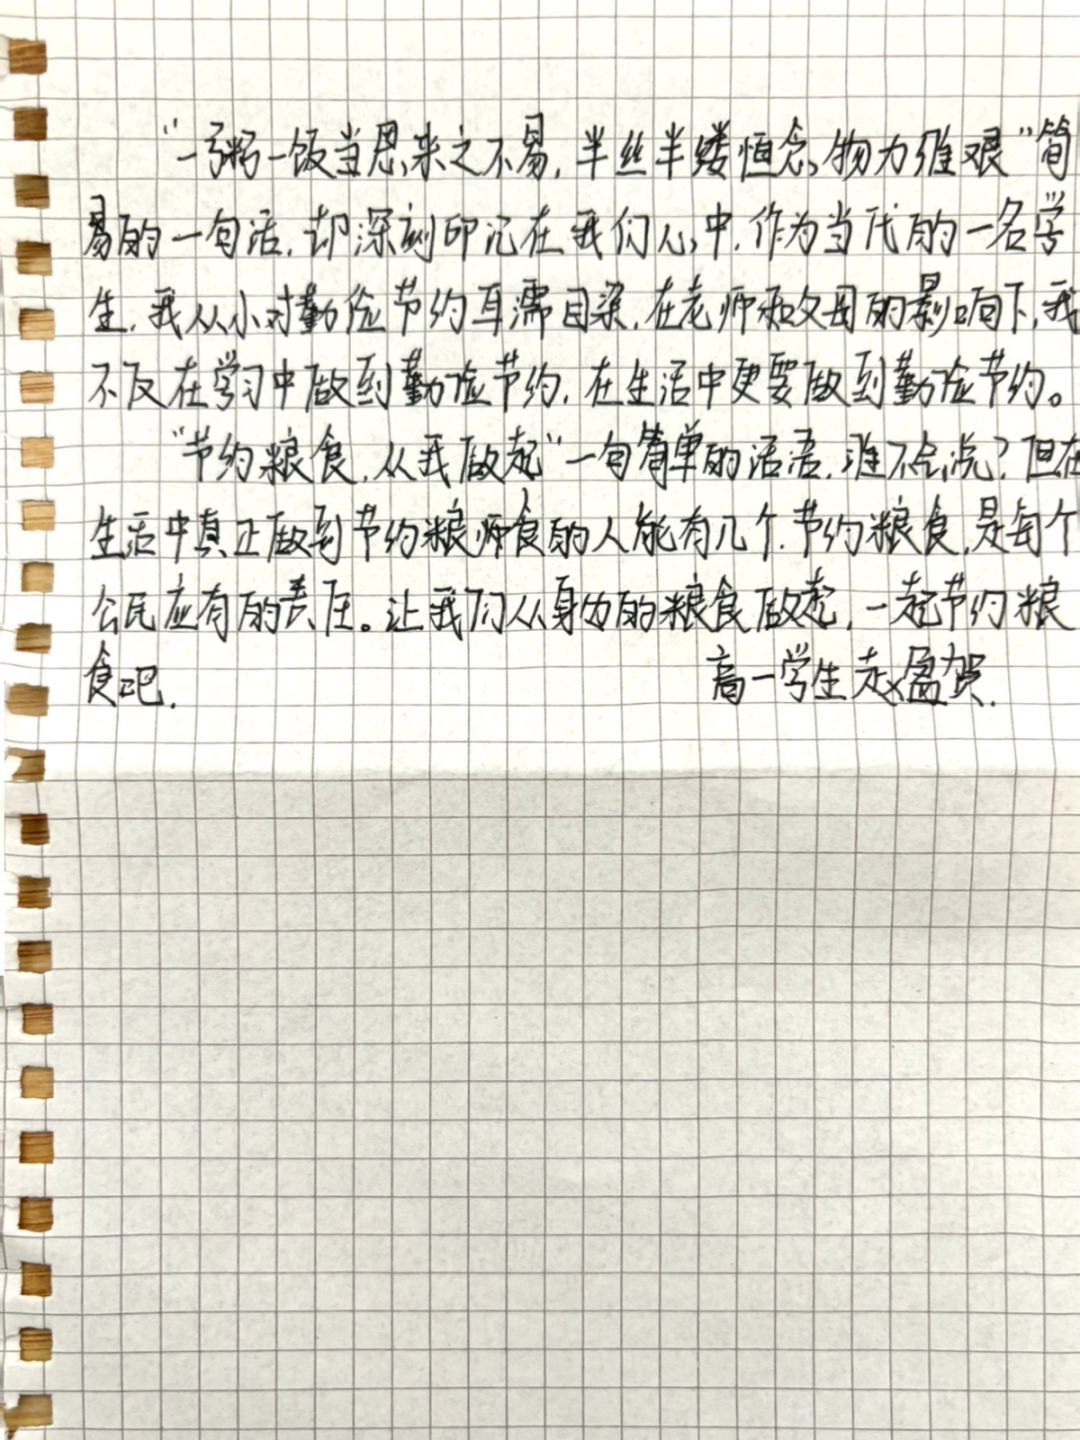 “一粥一饭当思来之不易,半丝半缕恒念物力维艰”简
易的一句话,却深刻印记在我们心中,作为当代的一名学
生,我从小对勤俭节约耳濡目染,在老师和父母的影响下,我
不仅在学习中做到勤俭节约,在生活中更要做到勤俭节约。
“节约粮食,从我做起”一句简单的话语,谁不会说?但在
生活中真正做到节约粮食的人能有几个.节约粮食,是每个
公民应有的责任。让我们从身边的粮食做起,一起节约粮
食吧.
高一学生赵盈贺.